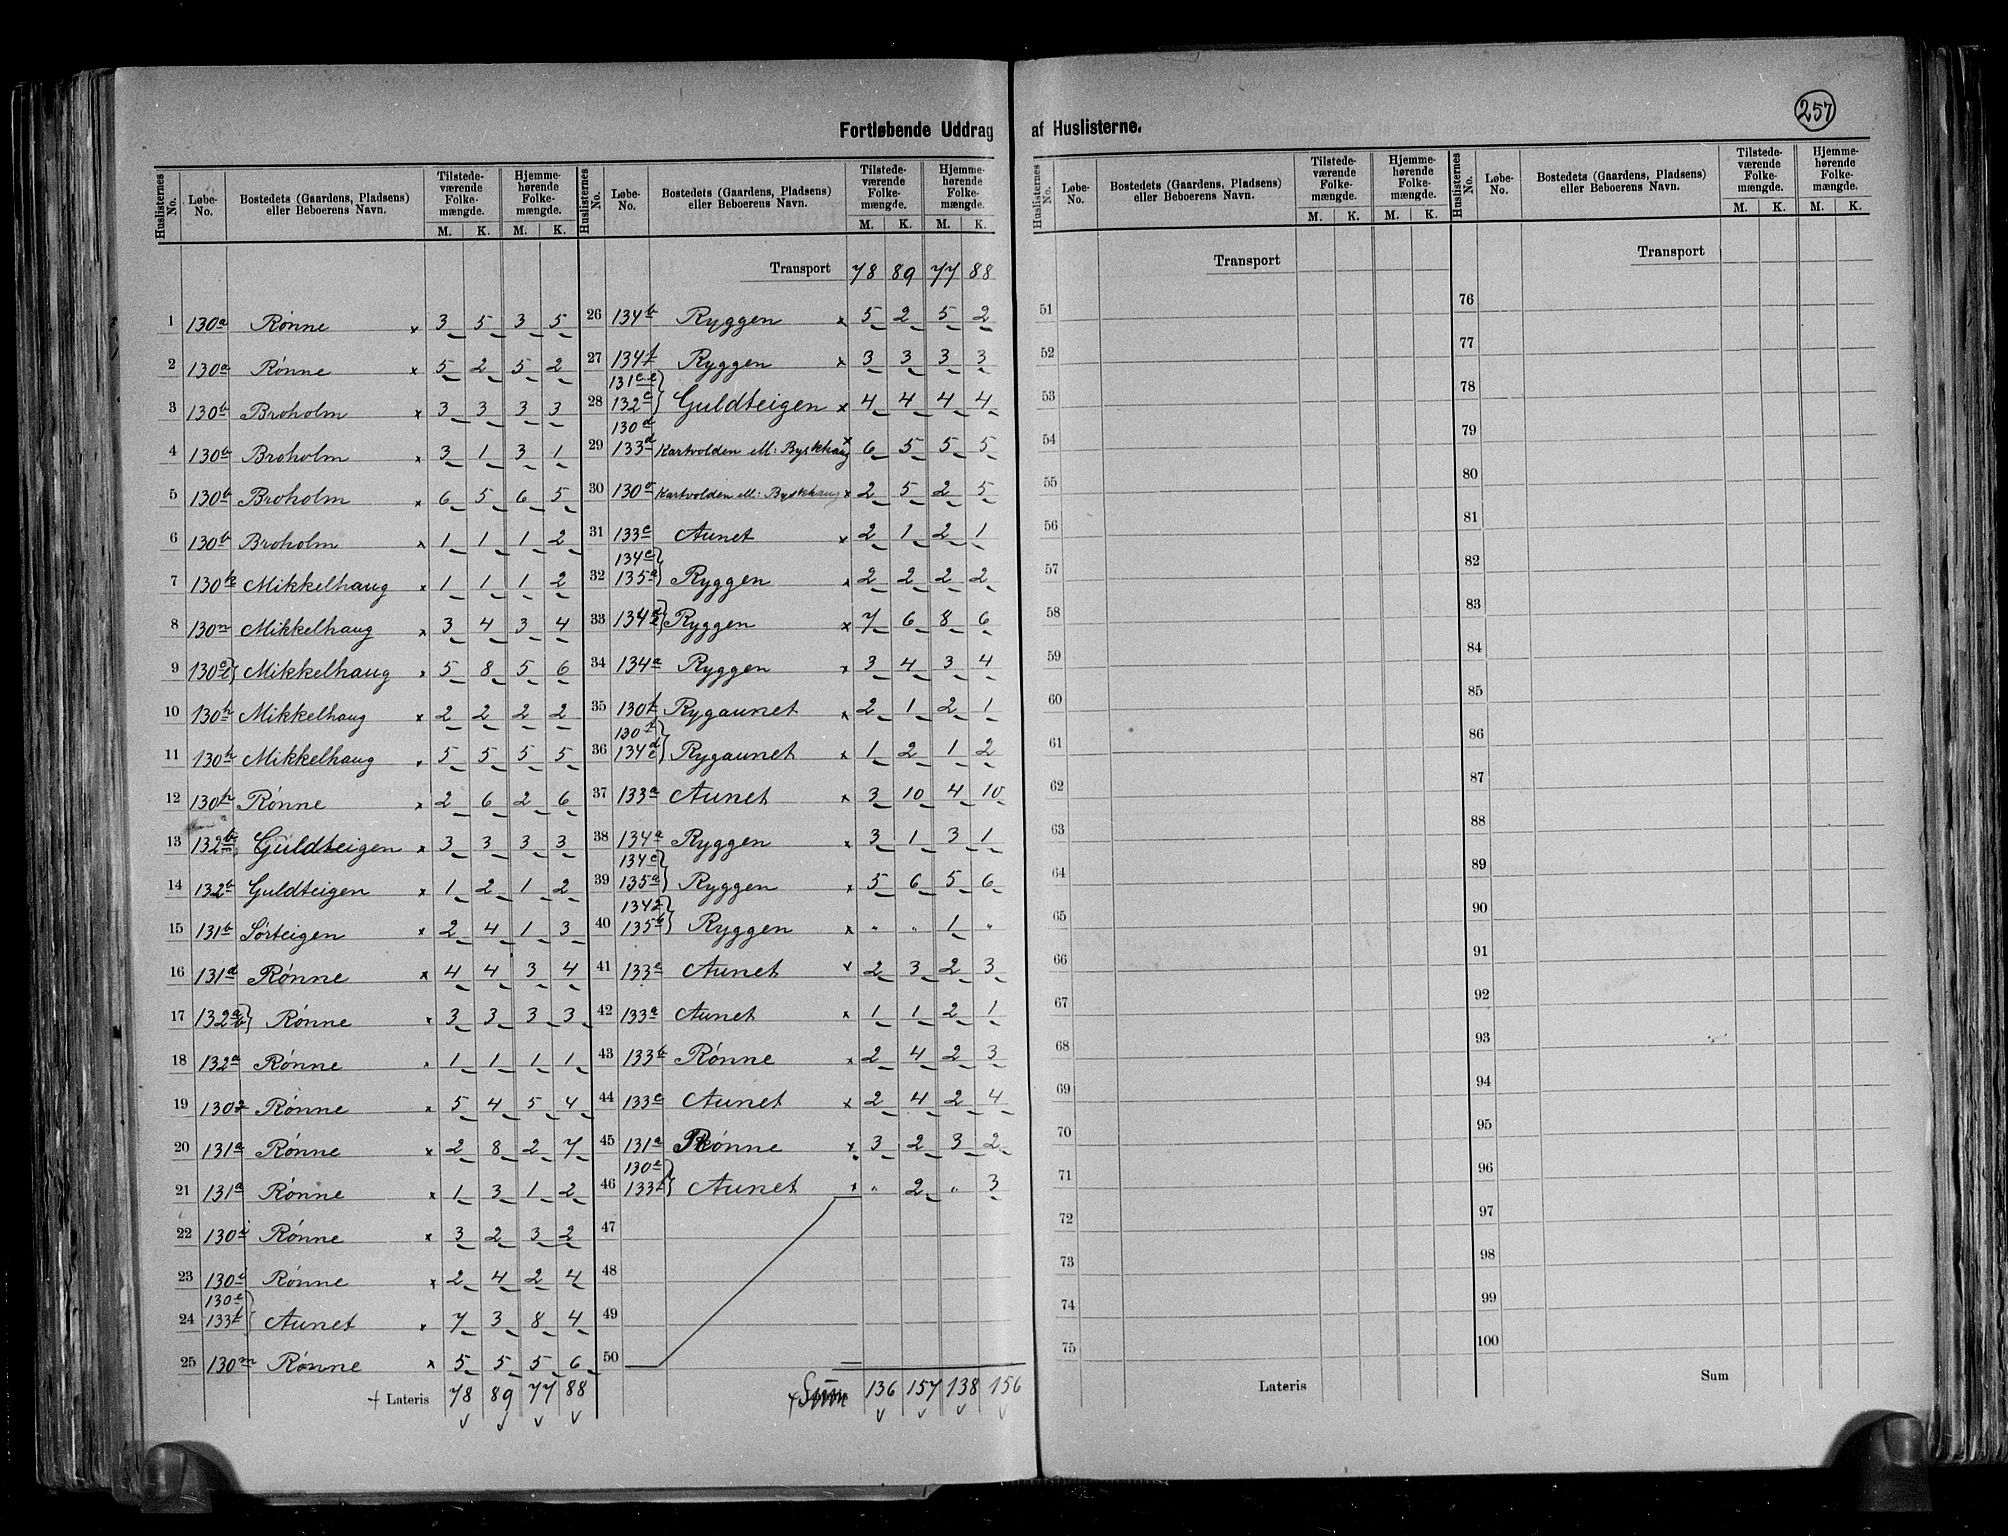 257
Fortløbende Uddrag af Huslisterne.
Huslisternes No. | Løbe-No. | Bostedets (Gaardens, Pladsens) eller Beboerens Navn. | Tilstedeværende Folkemængde. M. K. | Hjemmehørende Folkemængde. M. K.
1 130a Rønne x 3 5 3 5
2 130a Rønne x 5 2 5 2
3 130b Broholm x 3 3 3 3
4 130b Broholm x 3 1 3 1
5 130b Broholm x 6 5 6 5
6 130b Broholm x 1 1 1 2
7 130k Mikkelhaug x 1 1 1 2
8 130n Mikkelhaug x 3 4 3 4
9 130 Mikkelhaug x 5 8 5 6
10 130h Mikkelhaug x 2 2 2 2
11 130h Mikkelhaug x 5 5 5 5
12 130h Rønne x 2 6 2 6
13 132b Guldteigen x 3 3 3 3
14 132b Guldteigen x 1 2 1 2
15 131b Sørteigen x 2 4 1 3
16 131d Rønne x 4 4 3 4
17 132a b } Rønne x 3 3 3 3
18 132a Rønne x 1 1 1 1
19 130g Rønne x 5 4 5 4
20 131a Rønne x 2 8 2 7
21 131a Rønne x 1 3 1 2
22 130i Rønne x 3 2 3 2
23 130i Rønne x 2 4 2 4
130e
24 133f } Aunet x 7 3 8 4
25 130m Rønne x 5 5 5 6
Lateris 78 89 77 88
Huslisternes No. | Løbe-No. | Bostedets (Gaardens, Pladsens) eller Beboerens Navn. | Tilstedeværende Folkemængde. M. K. | Hjemmehørende Folkemængde. M. K.
Transport 78 89 77 88
26 134b Ryggen x 5 2 5 2
27 134f Ryggen x 3 3 3 3
131c
28 132c } Guldteigen x 4 4 4 4
130d
29 133d Kartvolden M: Byskhaug x 6 5 5 5
30 130o Kartvolden M: Byskhaug x 2 5 2 5
31 133c Aunet x 2 1 2 1
134c
32 135a } Ryggen x 2 2 2 2
33 134 } Ryggen x 7 6 8 6
34 134a Ryggen x 3 4 3 4
35 130f Rygaunet x 2 1 2 1
130f
36 134d } Rygaunet x 1 2 1 2
37 133a Aunet x 3 10 4 10
38 134a Ryggen x 3 1 3 1
134c
39 135a } Ryggen x 5 6 5 6
134g
40 135b } Ryggen x " " 1 "
41 133c Aunet x 2 3 2 3
42 133a Aunet x 1 1 2 1
43 133b Rønne x 2 4 2 3
44 133c Aunet x 2 4 2 4
45 131a Rønne x 3 2 3 2
130e
46 133f } Aunet x " 2 " 3
47
48
49
50
Sum 136 157 138 156
Huslisternes No. | Løbe-No. | Bostedets (Gaardens, Pladsens) eller Beboerens Navn. | Tilstedeværende Folkemængde. M. K. | Hjemmehørende Folkemængde. M. K.
Transport
51
52
53
54
55
56
57
58
59
60
61
62
63
64
65
66
67
68
69
70
71
72
73
74
75
Lateris
Huslisternes No. | Løbe-No. | Bostedets (Gaardens, Pladsens) eller Beboerens Navn. | Tilstedeværende Folkemængde. M. K. | Hjemmehørende Folkemængde. M. K.
Transport
76
77
78
79
80
81
82
83
84
85
86
87
88
89
90
91
92
93
94
95
96
97
98
99
100
Sum